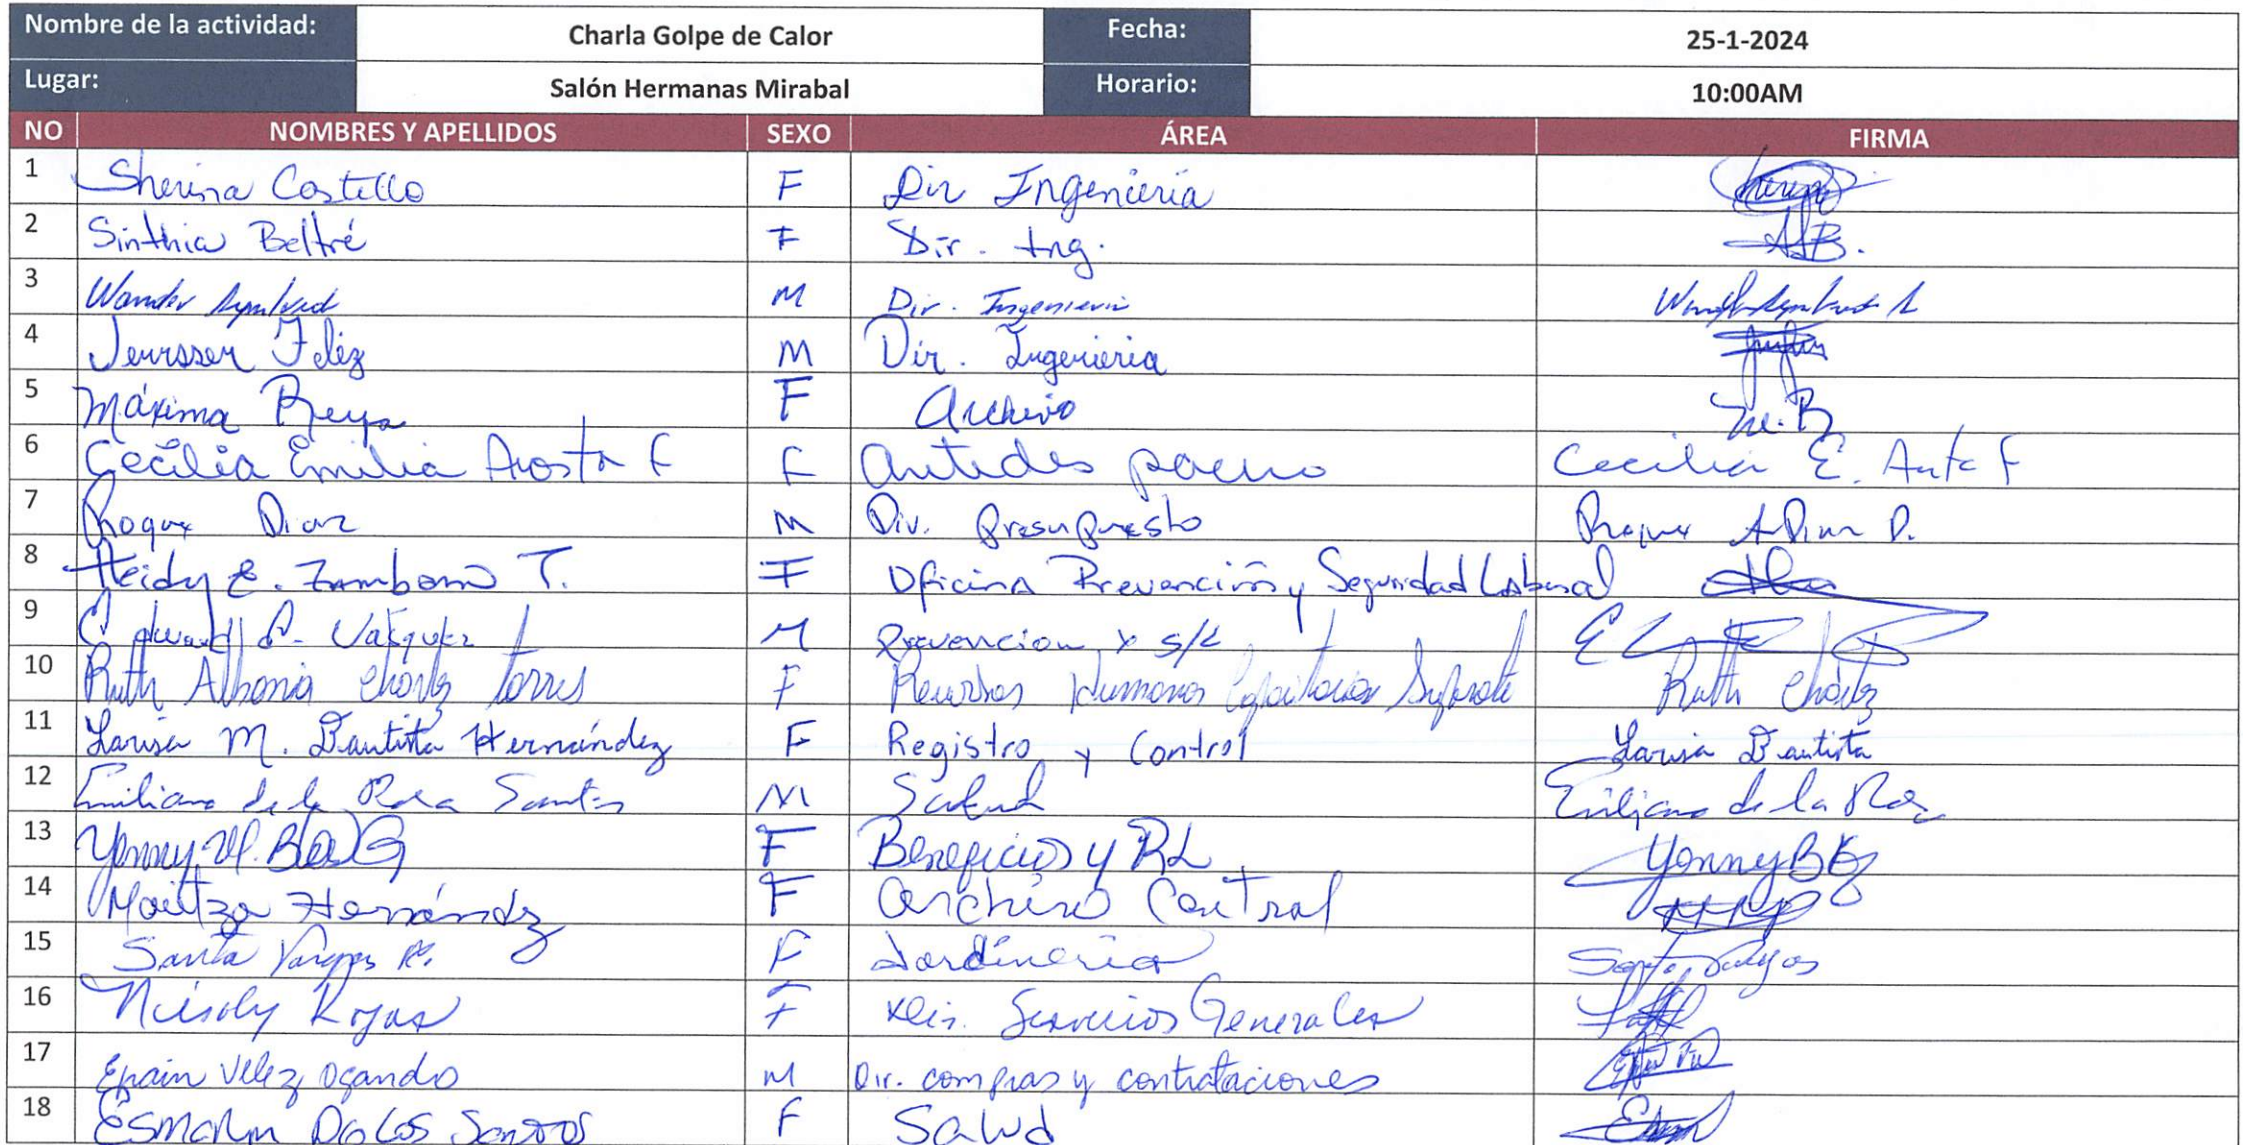 Nombre de la actividad: Charla Golpe de Calor Fecha: 25-1-2024
Lugar: Salón Hermanas Mirabal Horario: 10:00AM
NO NOMBRES Y APELLIDOS SEXO ÁREA FIRMA
1 Sherina Costello F Dir Ingenieria
2 Sinthia Beltré F Dir. Ing. SB.
3 Wander M Dir. Ingenieria
4 Jeursser Feliz M Dir. Ingenieria
5 Máxima Reyes F Archivo M.R
6 Cecilia Emilia Acosta F F Cecilia E. F
7 Roque Diaz M Div. Presupuesto Roque A Diaz D.
8 Heidy E. Zambom T. F Oficina Prevención y Seguridad Laboral
9 Edward P. Vásquez M Prevencion y S/L
10 Ruth Albania Chavez Torres F Recursos Humanos Ruth Chávez
11 Larisa M. Bautista Hernández F Registro y Control Larisa Bautista
12 Emiliano de la Rosa Santos M Salud Emiliano de la Rosa
13 Yenny M. F Beneficios y RL Yenny
14 Maritza Hernández F Archivo Central
15 Santa Vargas R. F Jardineria Santa Vargas
16 Rojas F Servicios Generales
17 Efrain Velez Ogando M Dir. compras y contrataciones
18 De Los Santos F Salud